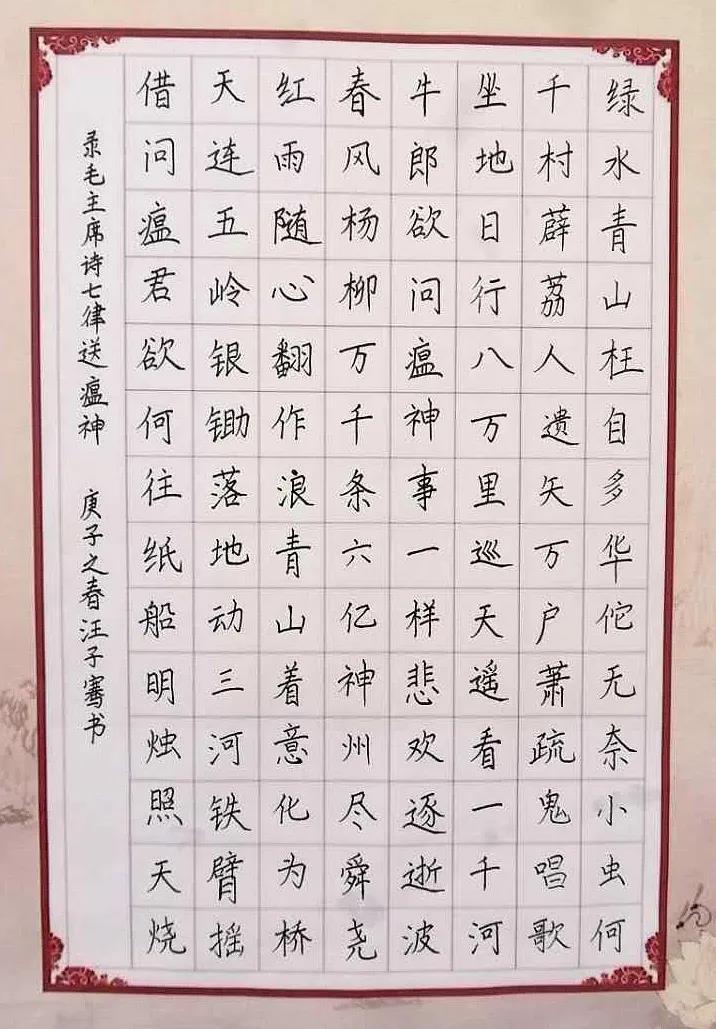 绿水青山枉自多华佗无奈小虫何
千村薜荔人遗矢万户萧疏鬼唱歌
坐地日行八万里巡天遥看一千河
牛郎欲问瘟神事一样悲欢逐逝波
春风杨柳万千条六亿神州尽舜尧
红雨随心翻作浪青山着意化为桥
天连五岭银锄落地动三河铁臂摇
借问瘟君欲何往纸船明烛照天烧
录毛主席诗七律送瘟神 庚子之春汪子骞书